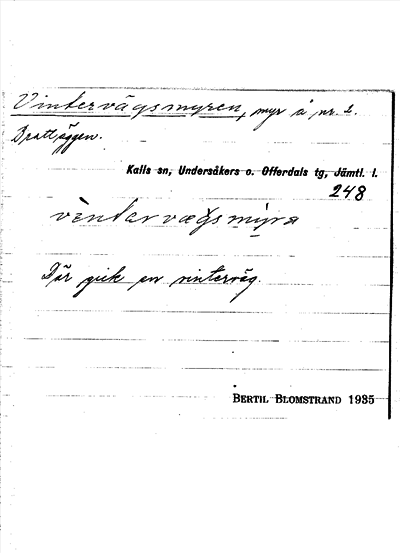 Vintervägsmyren, myr å nr. 2.
Brattäggen.
Kalls sn, Undersåkers o. Offerdals tg, Jämtl. l.
248
vèntervægsmyra
Där gick en vinterväg.
BERTIL BLOMSTRAND 1935